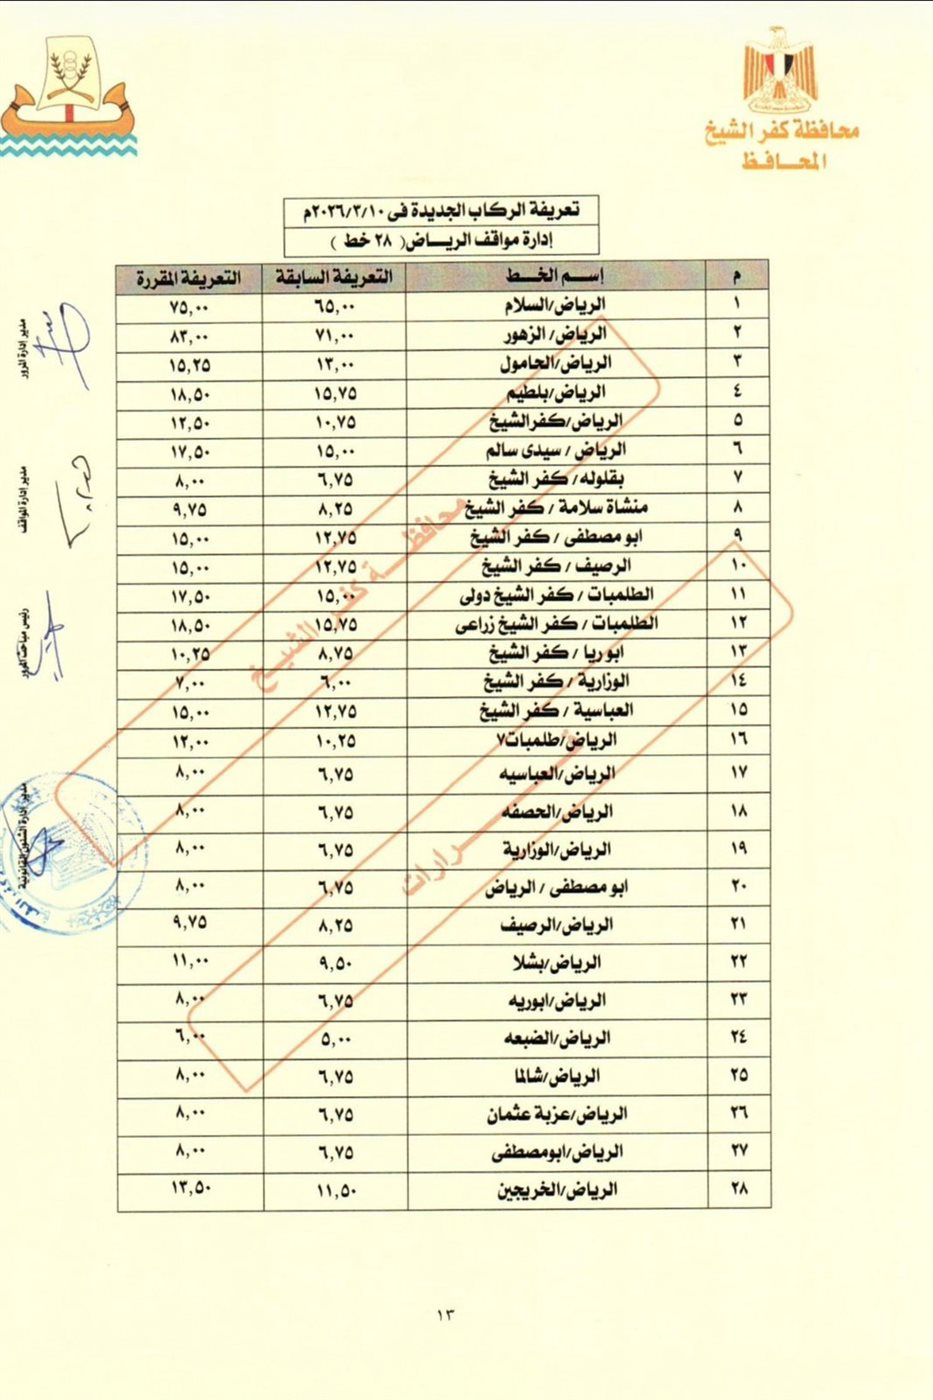 محافظة كفر الشيخ
المحـــافـــظ
تعريفة الركاب الجديدة فى ٢٠٢٦/٣/١٠م
إدارة مواقف الريـــاض( ٢٨ خط )
م إســم الخــط التعريفة السابقة التعريفة المقررة
١ الرياض/السلام ٦٥,٠٠ ٧٥,٠٠
٢ الرياض/الزهور ٧١,٠٠ ٨٣,٠٠
٣ الرياض/الحامول ١٣,٠٠ ١٥,٢٥
٤ الرياض/بلطيم ١٥,٧٥ ١٨,٥٠
٥ الرياض/كفرالشيخ ١٠,٧٥ ١٢,٥٠
٦ الرياض / سيدى سالم ١٥,٠٠ ١٧,٥٠
٧ بقلوله/ كفر الشيخ ٦,٧٥ ٨,٠٠
٨ منشاة سلامة / كفر الشيخ ٨,٢٥ ٩,٧٥
٩ ابو مصطفى / كفر الشيخ ١٢,٧٥ ١٥,٠٠
١٠ الرصيف / كفر الشيخ ١٢,٧٥ ١٥,٠٠
١١ الطلمبات / كفر الشيخ دولى ١٥,٠٠ ١٧,٥٠
١٢ الطلمبات / كفر الشيخ زراعى ١٥,٧٥ ١٨,٥٠
١٣ ابو ريا / كفر الشيخ ٨,٧٥ ١٠,٢٥
١٤ الوزارية / كفر الشيخ ٦,٠٠ ٧,٠٠
١٥ العباسية / كفر الشيخ ١٢,٧٥ ١٥,٠٠
١٦ الرياض/طلمبات٧ ١٠,٢٥ ١٢,٠٠
١٧ الرياض/العباسيه ٦,٧٥ ٨,٠٠
١٨ الرياض/الحصفه ٦,٧٥ ٨,٠٠
١٩ الرياض/الوزارية ٦,٧٥ ٨,٠٠
٢٠ ابو مصطفى / الرياض ٦,٧٥ ٨,٠٠
٢١ الرياض/الرصيف ٨,٢٥ ٩,٧٥
٢٢ الرياض/بشلا ٩,٥٠ ١١,٠٠
٢٣ الرياض/ابوريه ٦,٧٥ ٨,٠٠
٢٤ الرياض/الضبعه ٥,٠٠ ٦,٠٠
٢٥ الرياض/شالما ٦,٧٥ ٨,٠٠
٢٦ الرياض/عزبة عثمان ٦,٧٥ ٨,٠٠
٢٧ الرياض/ابومصطفى ٦,٧٥ ٨,٠٠
٢٨ الرياض/الخريجين ١١,٥٠ ١٣,٥٠
محافظـــة كفر الشيـــخ
قـــرارات
مدير إدارة المرور
مدير إدارة المواقف
رئيس مباحث المرور
مدير إدارة الشئون القانونية
١٣